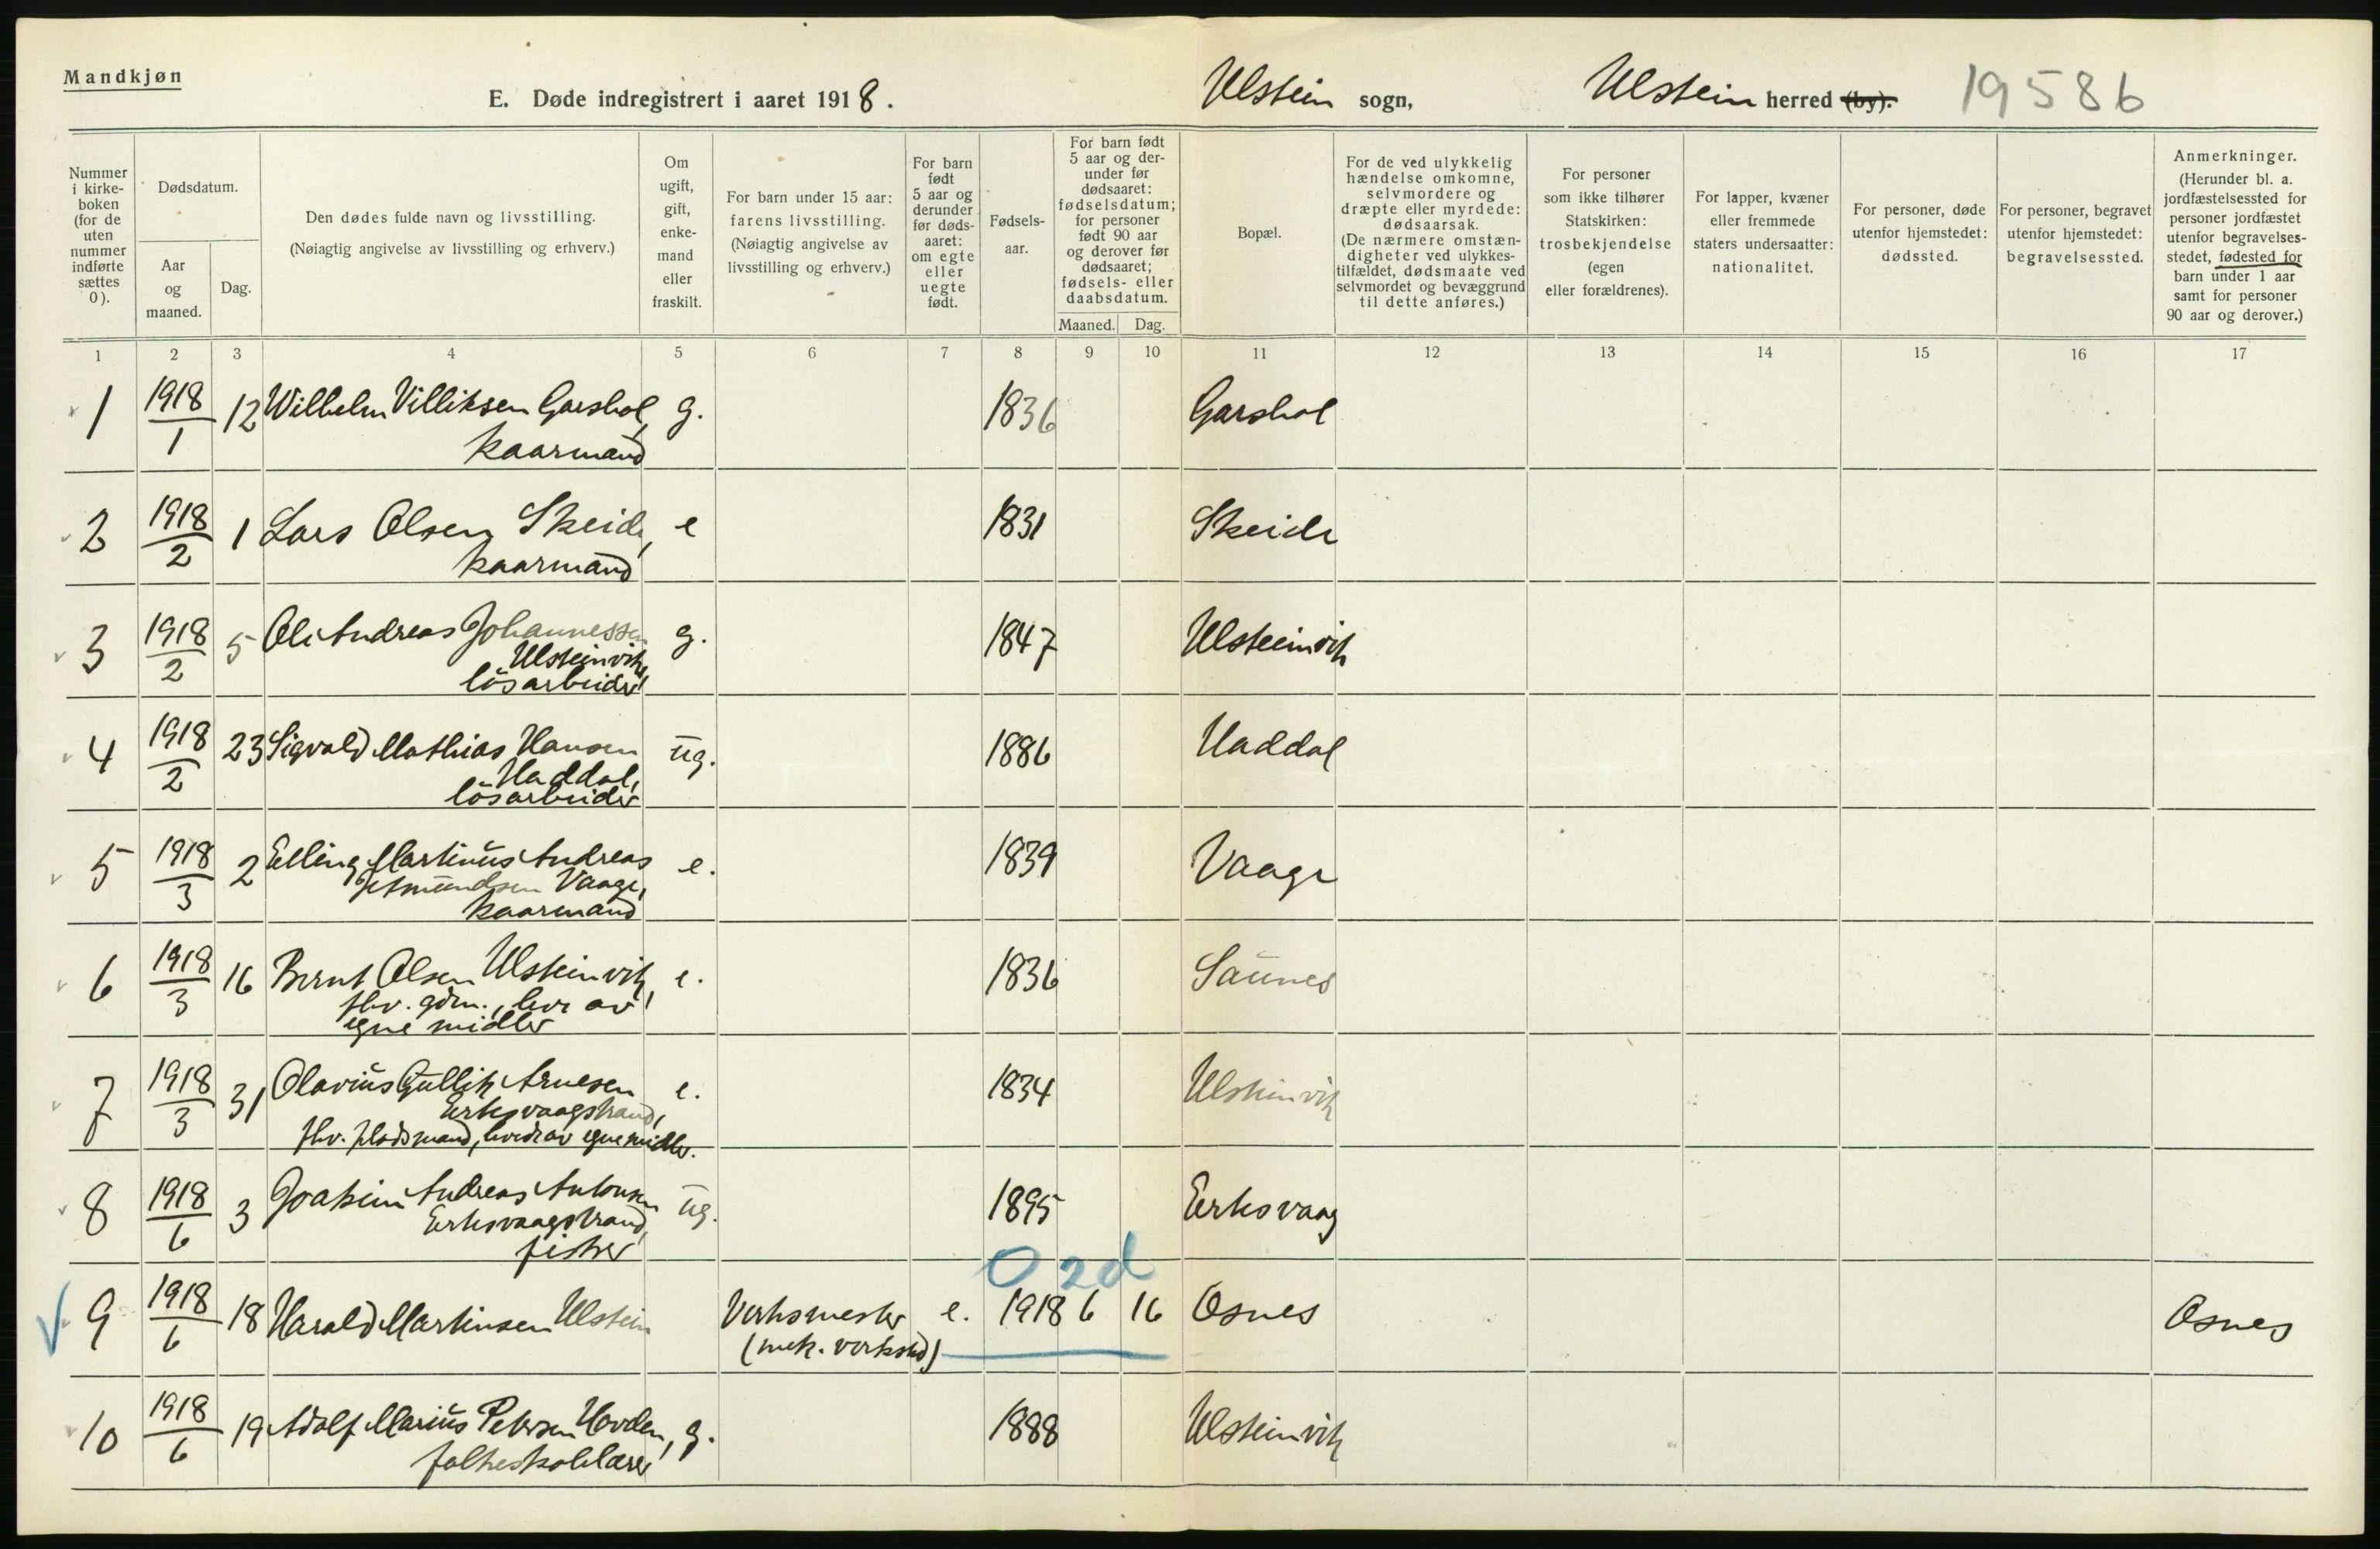 Mandkjøn
E. Døde indregistrert i aaret 1918.
Ulstein sogn,
Ulstein herred (by).
19586
Nummer i kirke- boken (for de uten nummer indførte sættes 0).
Dødsdatum.
Aar og maaned.
Dag.
Den dødes fulde navn og livsstilling.
(Nøiagtig angivelse av livsstilling og erhverv.)
Om ugift, gift, enke- mand eller fraskilt.
For barn under 15 aar: farens livsstilling.
(Nøiagtig angivelse av livsstilling og erhverv.)
For barn født 5 aar og derunder før døds- aaret: om egte eller uegte født.
Fødsels- aar.
For barn født 5 aar og der- under før dødsaaret: fødselsdatum; for personer født 90 aar og derover før dødsaaret; fødsels- eller daabsdatum.
Maaned. Dag.
Bopæl.
For de ved ulykkelig hændelse omkomne, selvmordere og dræpte eller myrdede: dødsaarsak.
(De nærmere omstæn- digheter ved ulykkes- tilfældet, dødsmaate ved selvmordet og bevæggrund til dette anføres.)
For personer som ikke tilhører Statskirken: trosbekjendelse (egen eller forældrenes).
For lapper, kvæner eller fremmede staters undersaatter: nationalitet.
For personer, døde utenfor hjemstedet: dødssted.
For personer, begravet utenfor hjemstedet: begravelsessted.
Anmerkninger.
(Herunder bl. a. jordfæstelsessted for personer jordfæstet utenfor begravelses- stedet, fødested for barn under 1 aar samt for personer 90 aar og derover.)
1 2 3 4 5 6 7 8 9 10 11 12 13 14 15 16 17
1 1918/1 12 Wilhelm Villiksen Garshol, g. 1836 Garshol
kaarmand
2 1918/2 1 Lars Olsen Skeide, e 1831 Skeide
kaarmand
3 1918/2 5 Ole Andreas Johannessen g. 1847 Ulsteinvik
Ulsteinvik,
løsarbeider
4 1918/2 23 Sigvald Mathias Hansen ug. 1886 Haddal
Haddal,
løsarbeider
5 1918/3 2 Elling Martinus Andreas e. 1839 Vaage
Vaage,
kaarmand
6 1918/3 16 Bernt Olsen Ulsteinvik, e. 1836 Saunes
fhv. gdm., lever av
egne midler
7 1918/3 31 Olavius Gullik Arnesen e. 1834 Ulsteinvik
Eiksvaagstrand,
fhv. pladsmand, levde av egne midler.
8 1918/6 3 Joakim Andreas Antonsen ug. 1895 Eiksvaag
Eiksvaagstrand,
fisker
0 2d
9 1918/6 18 Harald Martinsen Ulstein Verksmester e. 1918 6 16 Osnes Osnes
(mek. verksted)
10 1918/6 19 Adolf Marius Petersen Hovden, g. 1888 Ulsteinvik
folkeskolelærer